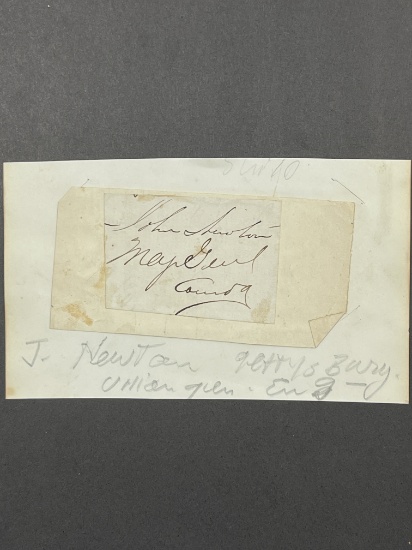 John Newton
Maj Genl
Comdg
J. Newton Gettysburg.
Union gen. Eng